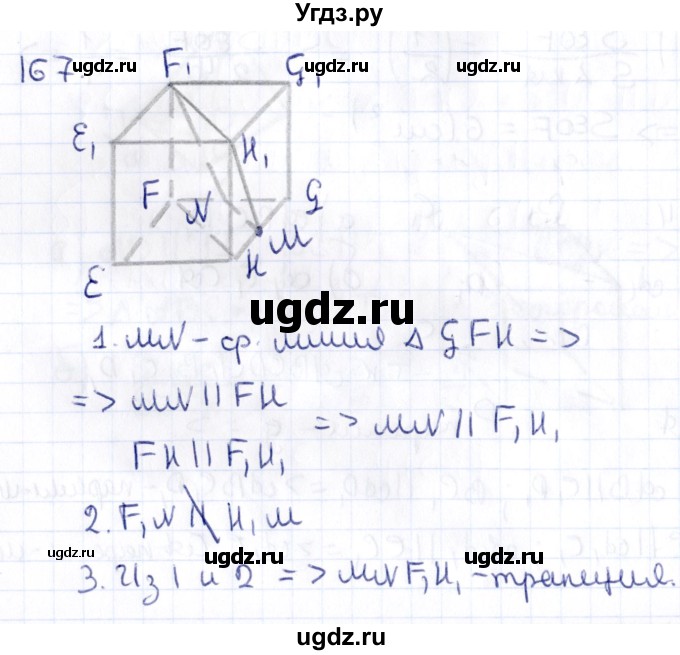 Угдз.ру
167.
ugdz.ru
ugdz.ru
F₁
G₁
ugdz.ru
E₁
H₁
F
N
G
ugdz.ru
M
E
H
ugdz.ru
ugdz.ru
1. MN - ср. линия Δ GFH =>
=> MN || FH
FH || F₁H₁
=> MN || F₁H₁
ugdz.ru
2. F₁N ∦ H₁M
ugdz.ru
ugdz.ru
ugdz.ru
3. Из 1 и 2 => MNF₁H₁ - трапеция.
ugdz.ru